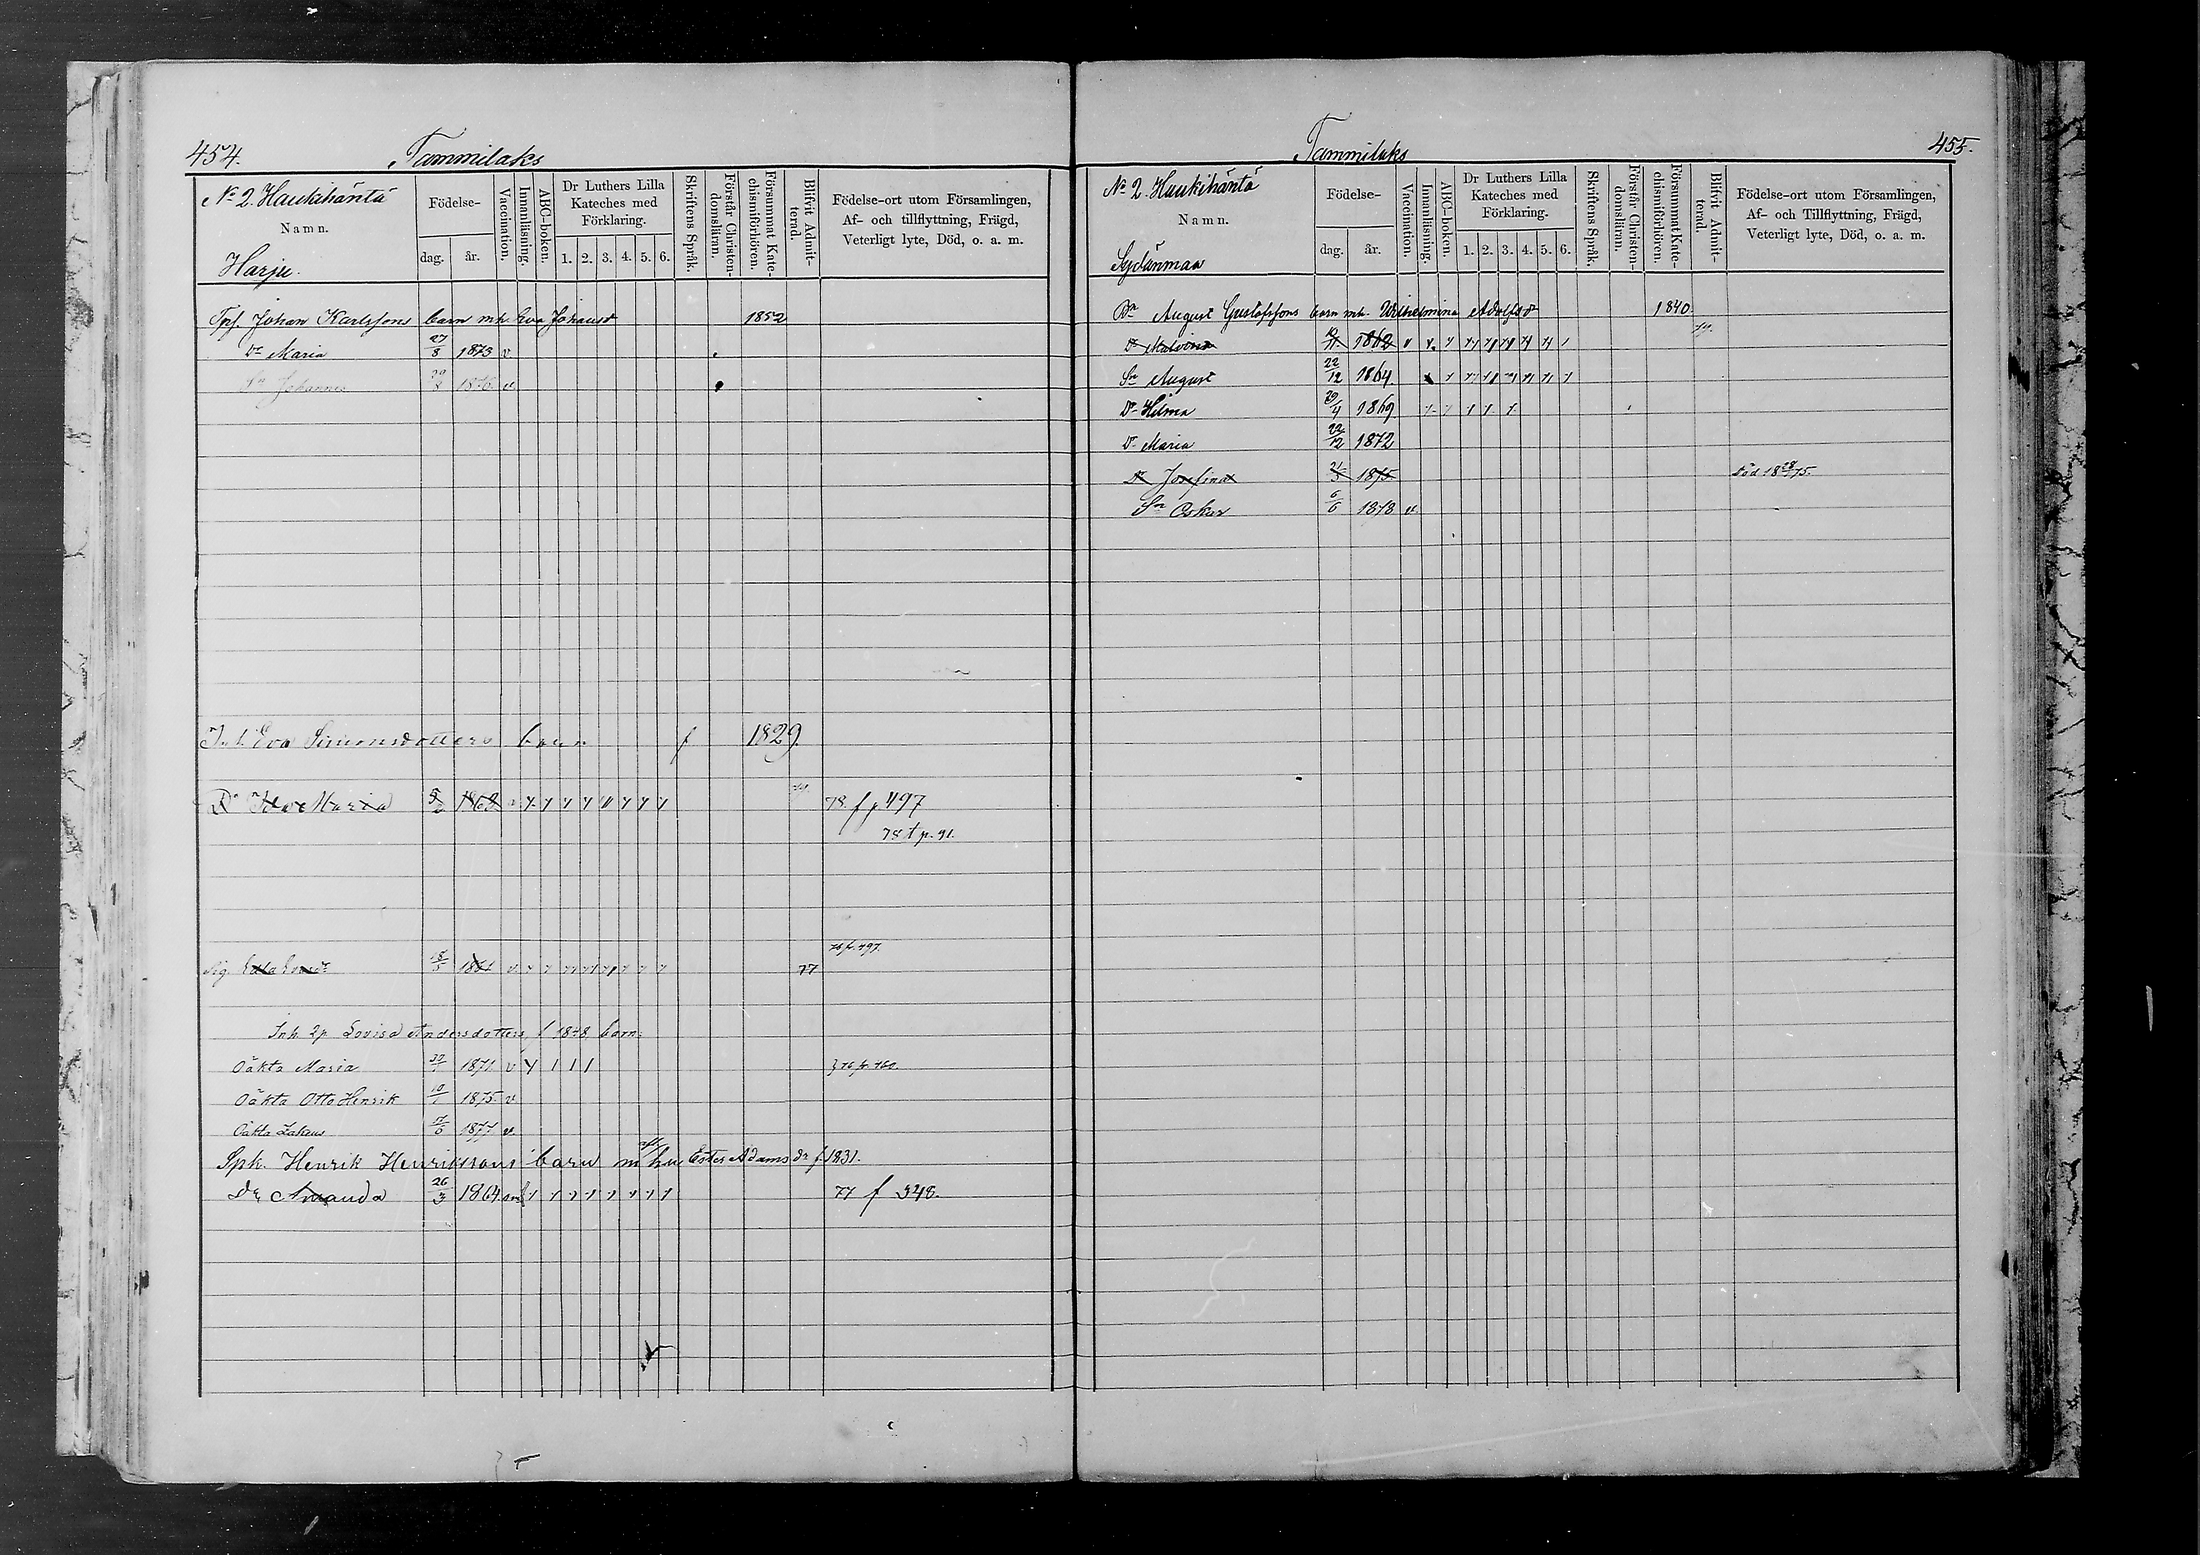 454. Tammilaks
No 2. Haukihäntä
Namn.
Harju.
Födelse-
dag. år.
Vaccination.
Innanläsning.
ABC-boken.
Dr Luthers Lilla Kateches med Förklaring.
1. 2. 3. 4. 5. 6.
Skriftens Språk.
Förstår Christendomsläran.
Försummat Katechismiförhören.
Blifvit Admitterad.
Födelse-ort utom Församlingen,
Af- och tillflyttning, Frägd,
Veterligt lyte, Död, o. a. m.
Johan Karlssons barn mh. Eva Johansd 1852
Dr Maria 27/8 1873 v
Sn Johannes 1876 v
Eva Simonsdotters barn f 1829.
Dr Ida Maria 1862 78. f p 497
78 t p. 91.
76 fr. 497.
1861 77
Inh. 2p Lovisa Andersdotters f 1848 barn:
Oäkta Maria 1871 v
Oäkta Otto Henrik 1875. v
Oäkta 1877 v.
Sph. Henrik Henrikssons barn m hu Ester Adams dr f 1831.
Dr Amanda 26/3 1864 77 f 348.
Tammilaks 455.
No 2. Haukihäntä
Namn.
Sydänmaa
Födelse-
dag. år.
Vaccination.
Innanläsning.
ABC-boken.
Dr Luthers Lilla Kateches med Förklaring.
1. 2. 3. 4. 5. 6.
Skriftens Språk.
Förstår Christendomsläran.
Försummat Katechismiförhören.
Blifvit Admitterad.
Födelse-ort utom Församlingen,
Af- och Tillflyttning, Frägd,
Veterligt lyte, Död, o. a. m.
August Gustafssons barn mh. Wilhelmina Adolfsd 1840
Dr Malvina 1862 v
Sn August 22/12 1864
Dr Hilma 29/4 1869
Dr Maria 22/12 1872
Dr Josefina 1875 Död
Sn Oskar 6/6 1878 v